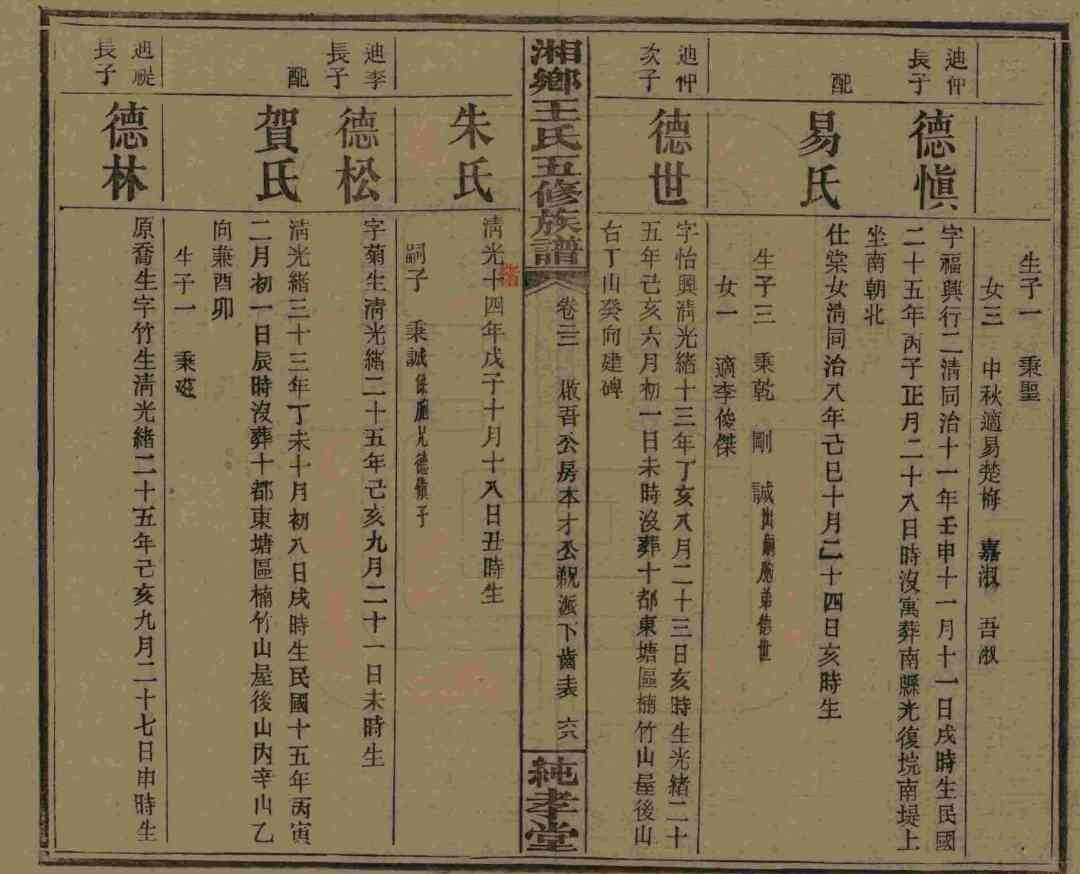 生子一 秉聖
女三 中秋適易楚梅 嘉淑 吾淑
迪仲
長子
德愼
字福興行二清同治十一年壬申十一月十一日戌時生民國
二十五年丙子正月二十八日時沒寓葬南縣光復垸南堤上
坐南朝北
配
易氏
仕棠女清同治八年己巳十月二十四日亥時生
生子三 秉乾 剛 誠出嗣胞弟德世
女一 適李俊傑
迪仲
次子
德世
字怡興清光緒十三年丁亥八月二十三日亥時生光緒二十
五年己亥六月初一日未時沒葬十都東塘區楠竹山屋後山
右丁山癸向建碑
湘鄉王氏五修族譜
卷三 啟吾公房本才公派下齒表 六八
純孝堂
朱氏
清光十四年戊子十月十八日丑時生
嗣子 秉誠係胞兄德愼子
迪李
長子
德松
字菊生清光緒二十五年己亥九月二十一日未時生
配
賀氏
清光緒三十三年丁未十月初八日戌時生民國十五年丙寅
二月初一日辰時沒葬十都東塘區楠竹山屋後山內辛山乙
向兼酉卯
生子一 秉
迪禔
長子
德林
原喬生字竹生清光緒二十五年己亥九月二十七日申時生